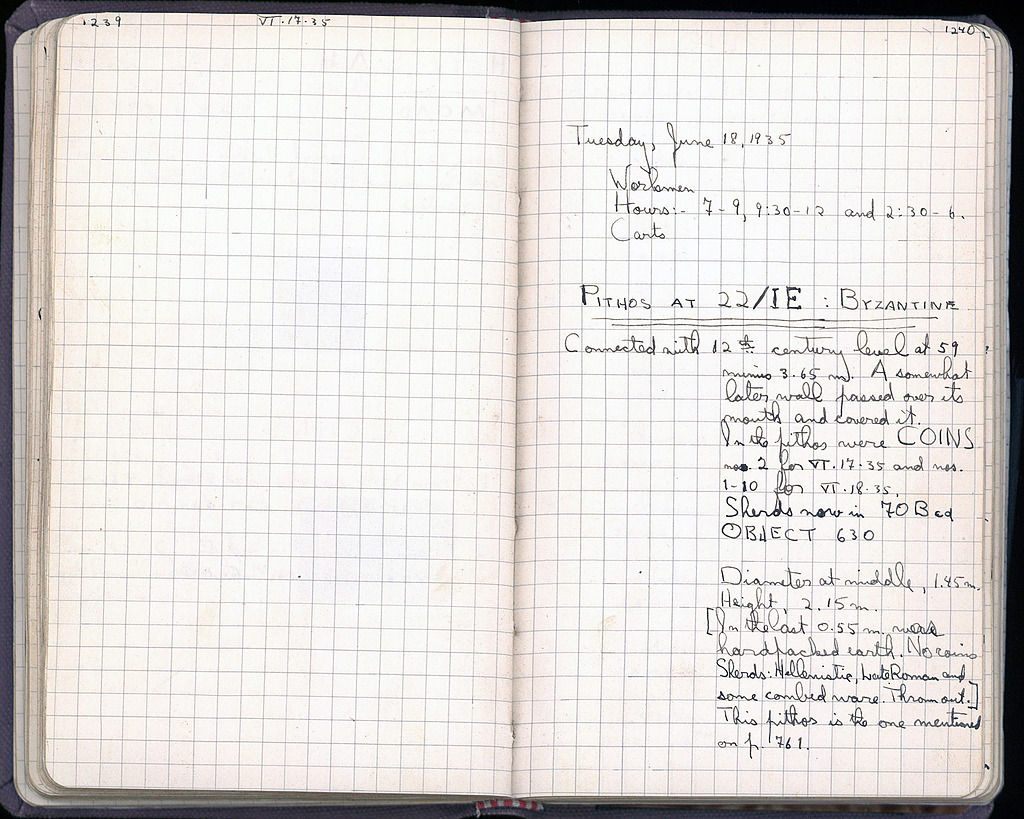 1239
VI.17.35
1240
Tuesday, June 18, 1935
Workmen
Hours:- 7-9, 9:30-12 and 2:30-6.
Carts
PITHOS AT 22/IE : BYZANTINE
Connected with 12th century level at 59
minus 3.65 m. A somewhat
later wall passed over its
mouth and covered it.
In the pithos were COINS
nos. 2 for VI.17.35 and nos.
1-10 for VI.18.35.
Sherds now in 70 B ed
OBJECT 630
Diameter at middle, 1.45 m.
Height, 2.15 m.
[In the last 0.55 m. was
hardpacked earth. No coins
Sherds: Hellenistic, Late Roman and
some combed ware. Thrown out.]
This pithos is the one mentioned
on p. 761.